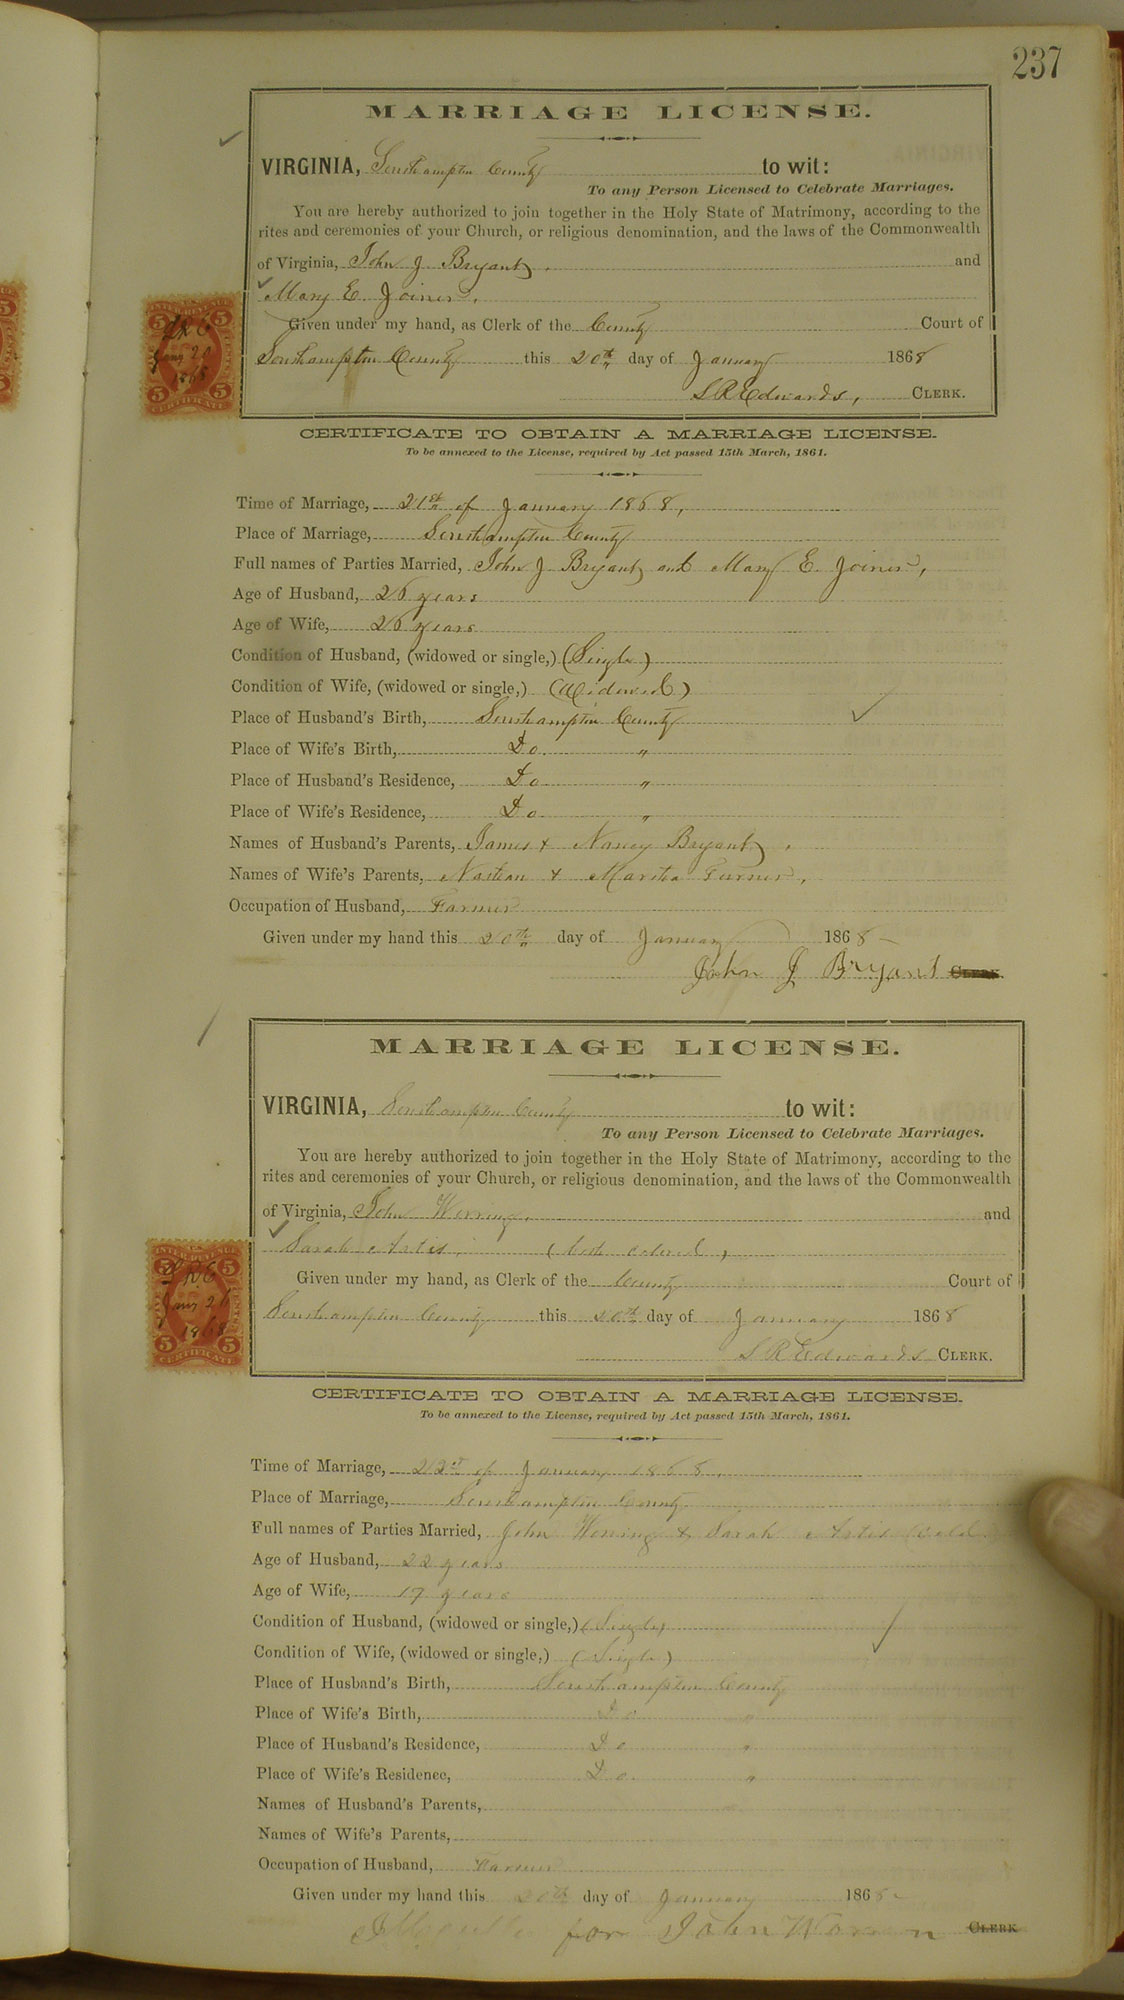 237
MARRIAGE LICENSE.
VIRGINIA, Southampton County to wit:
To any Person Licensed to Celebrate Marriages.
You are hereby authorized to join together in the Holy State of Matrimony, according to the
rites and ceremonies of your Church, or religious denomination, and the laws of the Commonwealth
of Virginia, John J Bryant, and
Mary E. Joiner,
Given under my hand, as Clerk of the County Court of
Southampton County this 20th day of January 1868
S R Edwards, CLERK.
INTER. REVENUE
5 5
Jany 20
1868
5 5
CERTIFICATE
CERTIFICATE TO OBTAIN A MARRIAGE LICENSE.
To be annexed to the License, required by Act passed 15th March, 1861.
Time of Marriage, 21st of January 1868,
Place of Marriage, Southampton County
Full names of Parties Married, John J. Bryant and Mary E. Joiner,
Age of Husband, 26 years
Age of Wife, 26 years
Condition of Husband, (widowed or single,) (Single)
Condition of Wife, (widowed or single,) (Widowed)
Place of Husband's Birth, Southampton County
Place of Wife's Birth, Do "
Place of Husband's Residence, Do "
Place of Wife's Residence, Do "
Names of Husband's Parents, James & Nancy Bryant,
Names of Wife's Parents, Nathan & Martha Turner,
Occupation of Husband, Farmer
Given under my hand this 20th day of January 1868
John J Bryant CLERK.
MARRIAGE LICENSE.
VIRGINIA, Southampton County to wit:
To any Person Licensed to Celebrate Marriages.
You are hereby authorized to join together in the Holy State of Matrimony, according to the
rites and ceremonies of your Church, or religious denomination, and the laws of the Commonwealth
of Virginia, John and
Sarah Artis, (both colored,
Given under my hand, as Clerk of the County Court of
Southampton County this 20th day of January 1868
S R Edwards CLERK.
INTER. REVENUE
5 5
Jany
1868
5 5
CERTIFICATE
CERTIFICATE TO OBTAIN A MARRIAGE LICENSE.
To be annexed to the License, required by Act passed 15th March, 1861.
Time of Marriage, of January 1868,
Place of Marriage, Southampton County
Full names of Parties Married, John & Sarah Artis
Age of Husband, 22 years
Age of Wife, 17 years
Condition of Husband, (widowed or single,) (Single)
Condition of Wife, (widowed or single,) (Single)
Place of Husband's Birth, Southampton County
Place of Wife's Birth, Do "
Place of Husband's Residence, Do "
Place of Wife's Residence, Do "
Names of Husband's Parents,
Names of Wife's Parents,
Occupation of Husband, Farmer
Given under my hand this 20th day of January 1868
for John CLERK